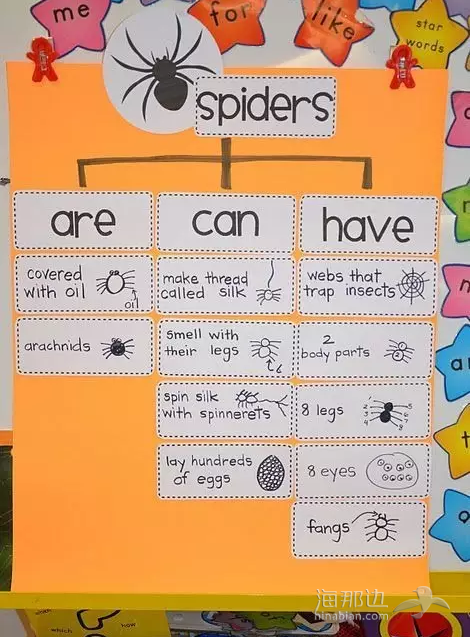 me
for
like
star
words
spiders
are
can
have
covered
with oil
oil
arachnids
make thread
called silk
smell with
their legs
spin silk
with spinnerets
lay hundreds
of eggs
webs that
trap insects
2
body parts
1
2
8 legs
1
2
3
4
5
6
7
8
8 eyes
fangs
which
how
海那边
hinabian.com